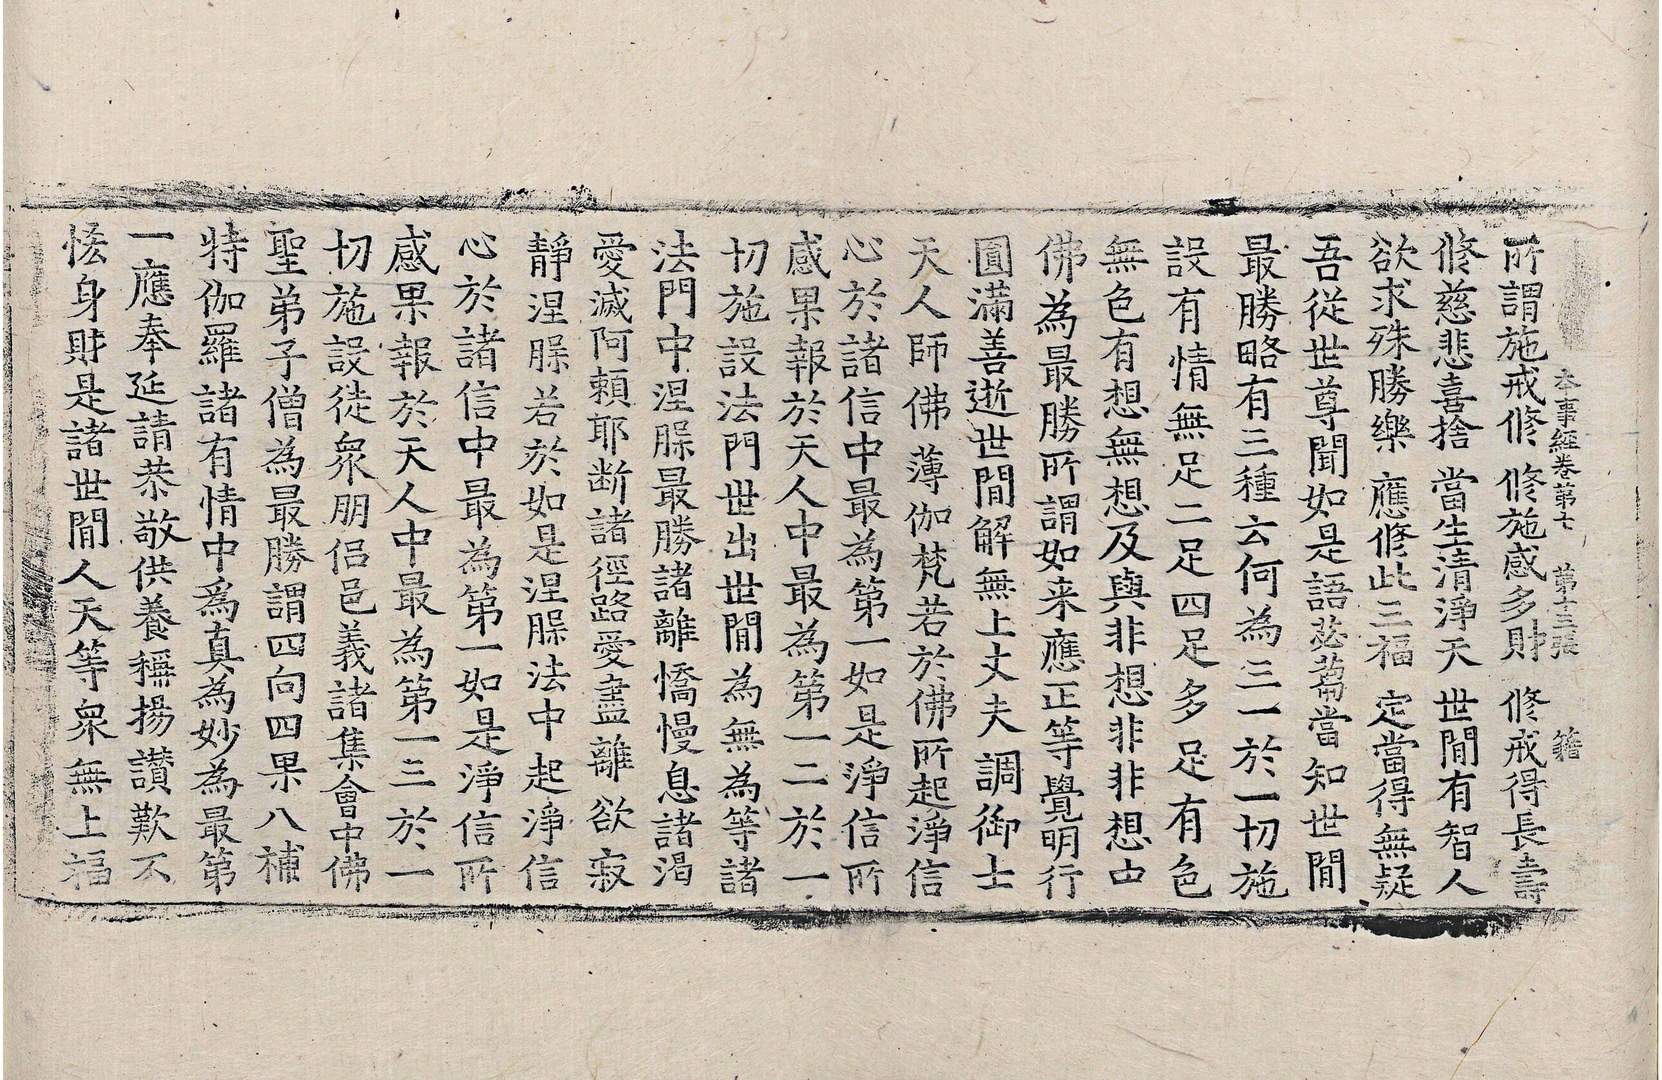 本事經卷第七 第十三張 籍
所謂施戒修 修施感多財 修戒得長壽
修慈悲喜捨 當生清淨天 世間有智人
欲求殊勝樂 應修此三福 定當得無疑
吾從世尊聞如是語苾蒭當知世間
最勝略有三種云何為三一於一切施
設有情無足二足四足多足有色
無色有想無想及與非想非非想由
佛為最勝所謂如来應正等覺明行
圓滿善逝世間解無上丈夫調御士
天人師佛薄伽梵若於佛所起淨信
心於諸信中最為第一如是淨信所
感果報於天人中最為第一二於一
切施設法門世出世間為無為等諸
法門中涅槃最勝諸離憍慢息諸渴
愛滅阿賴耶断諸徑路愛盡離欲寂
靜涅槃若於如是涅槃法中起淨信
心於諸信中最為第一如是淨信所
感果報於天人中最為第一三於一
切施設徒衆朋侣邑義諸集會中佛
聖弟子僧為最勝謂四向四果八補
特伽羅諸有情中爲真為妙為最第
一應奉延請恭敬供養稱揚讚歎不
恡身財是諸世間人天等衆無上福